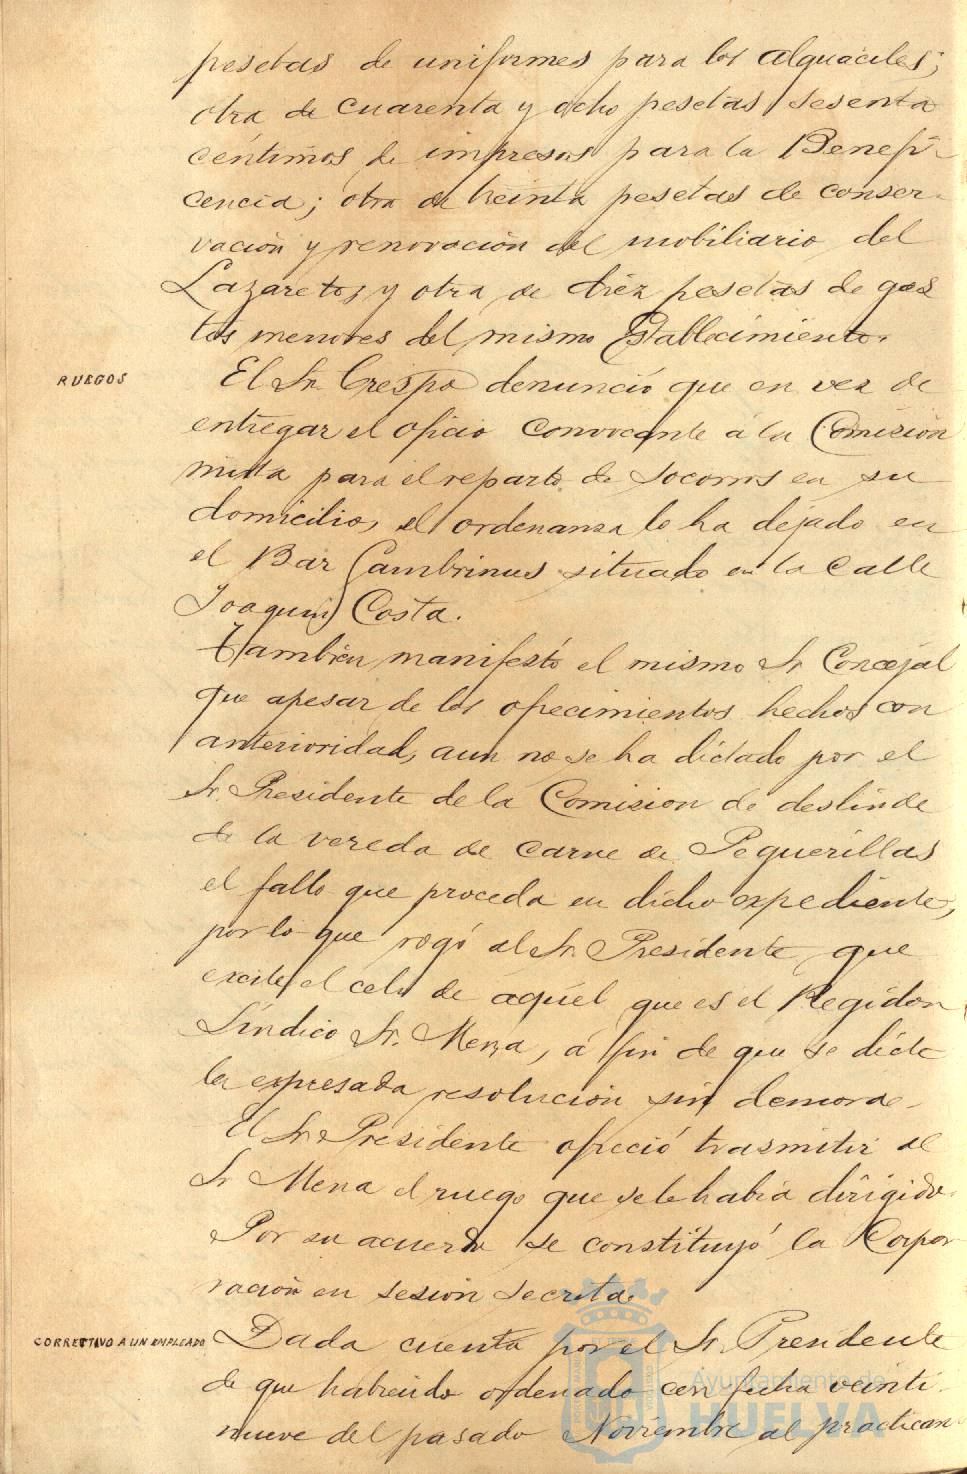 pesetas de uniformes para los alguaciles;
otra de cuarenta y ocho pesetas sesenta
centimos de impresos para la Benefi-
cencia; otra de treinta pesetas de conser-
vación y renovación del mobiliario del
Lazareto; y otra de diez pesetas de gas
tos menores del mismo Establecimiento.
RUEGOS
El Sr. Crespo denunció que en vez de
entregar el oficio convocante á la Comisión
mixta para el reparto de socorros en su
domicilio, el ordenanza lo ha dejado en
el Bar Gambrinus situado en la calle
Joaquin Costa.
También manifestó el mismo Sr Concejal
que apesar de los ofrecimientos hechos con
anterioridad, aun no se ha dictado por el
Sr. Presidente de la Comision de deslinde
de la vereda de carne de Peguerillas
el fallo que proceda en dicho expediente,
por lo que rogó al Sr. Presidente que
excite el celo de aquel que es el Regidor
Síndico Sr. Mena, á fin de que se dicte
la expresada resolucion sin demora.
El Sr. Presidente ofreció trasmitir al
Sr Mena el ruego que se le había dirigido.
Por su acuerdo se constituyó la Corpo-
ración en sesion secreta
CORRECTIVO A UN EMPLEADO
Dada cuenta por el Sr. Presidente
de que habiendo ordenado con fecha veinti-
nueve del pasado Noviembre al practican-
Ayuntamiento de
HUELVA